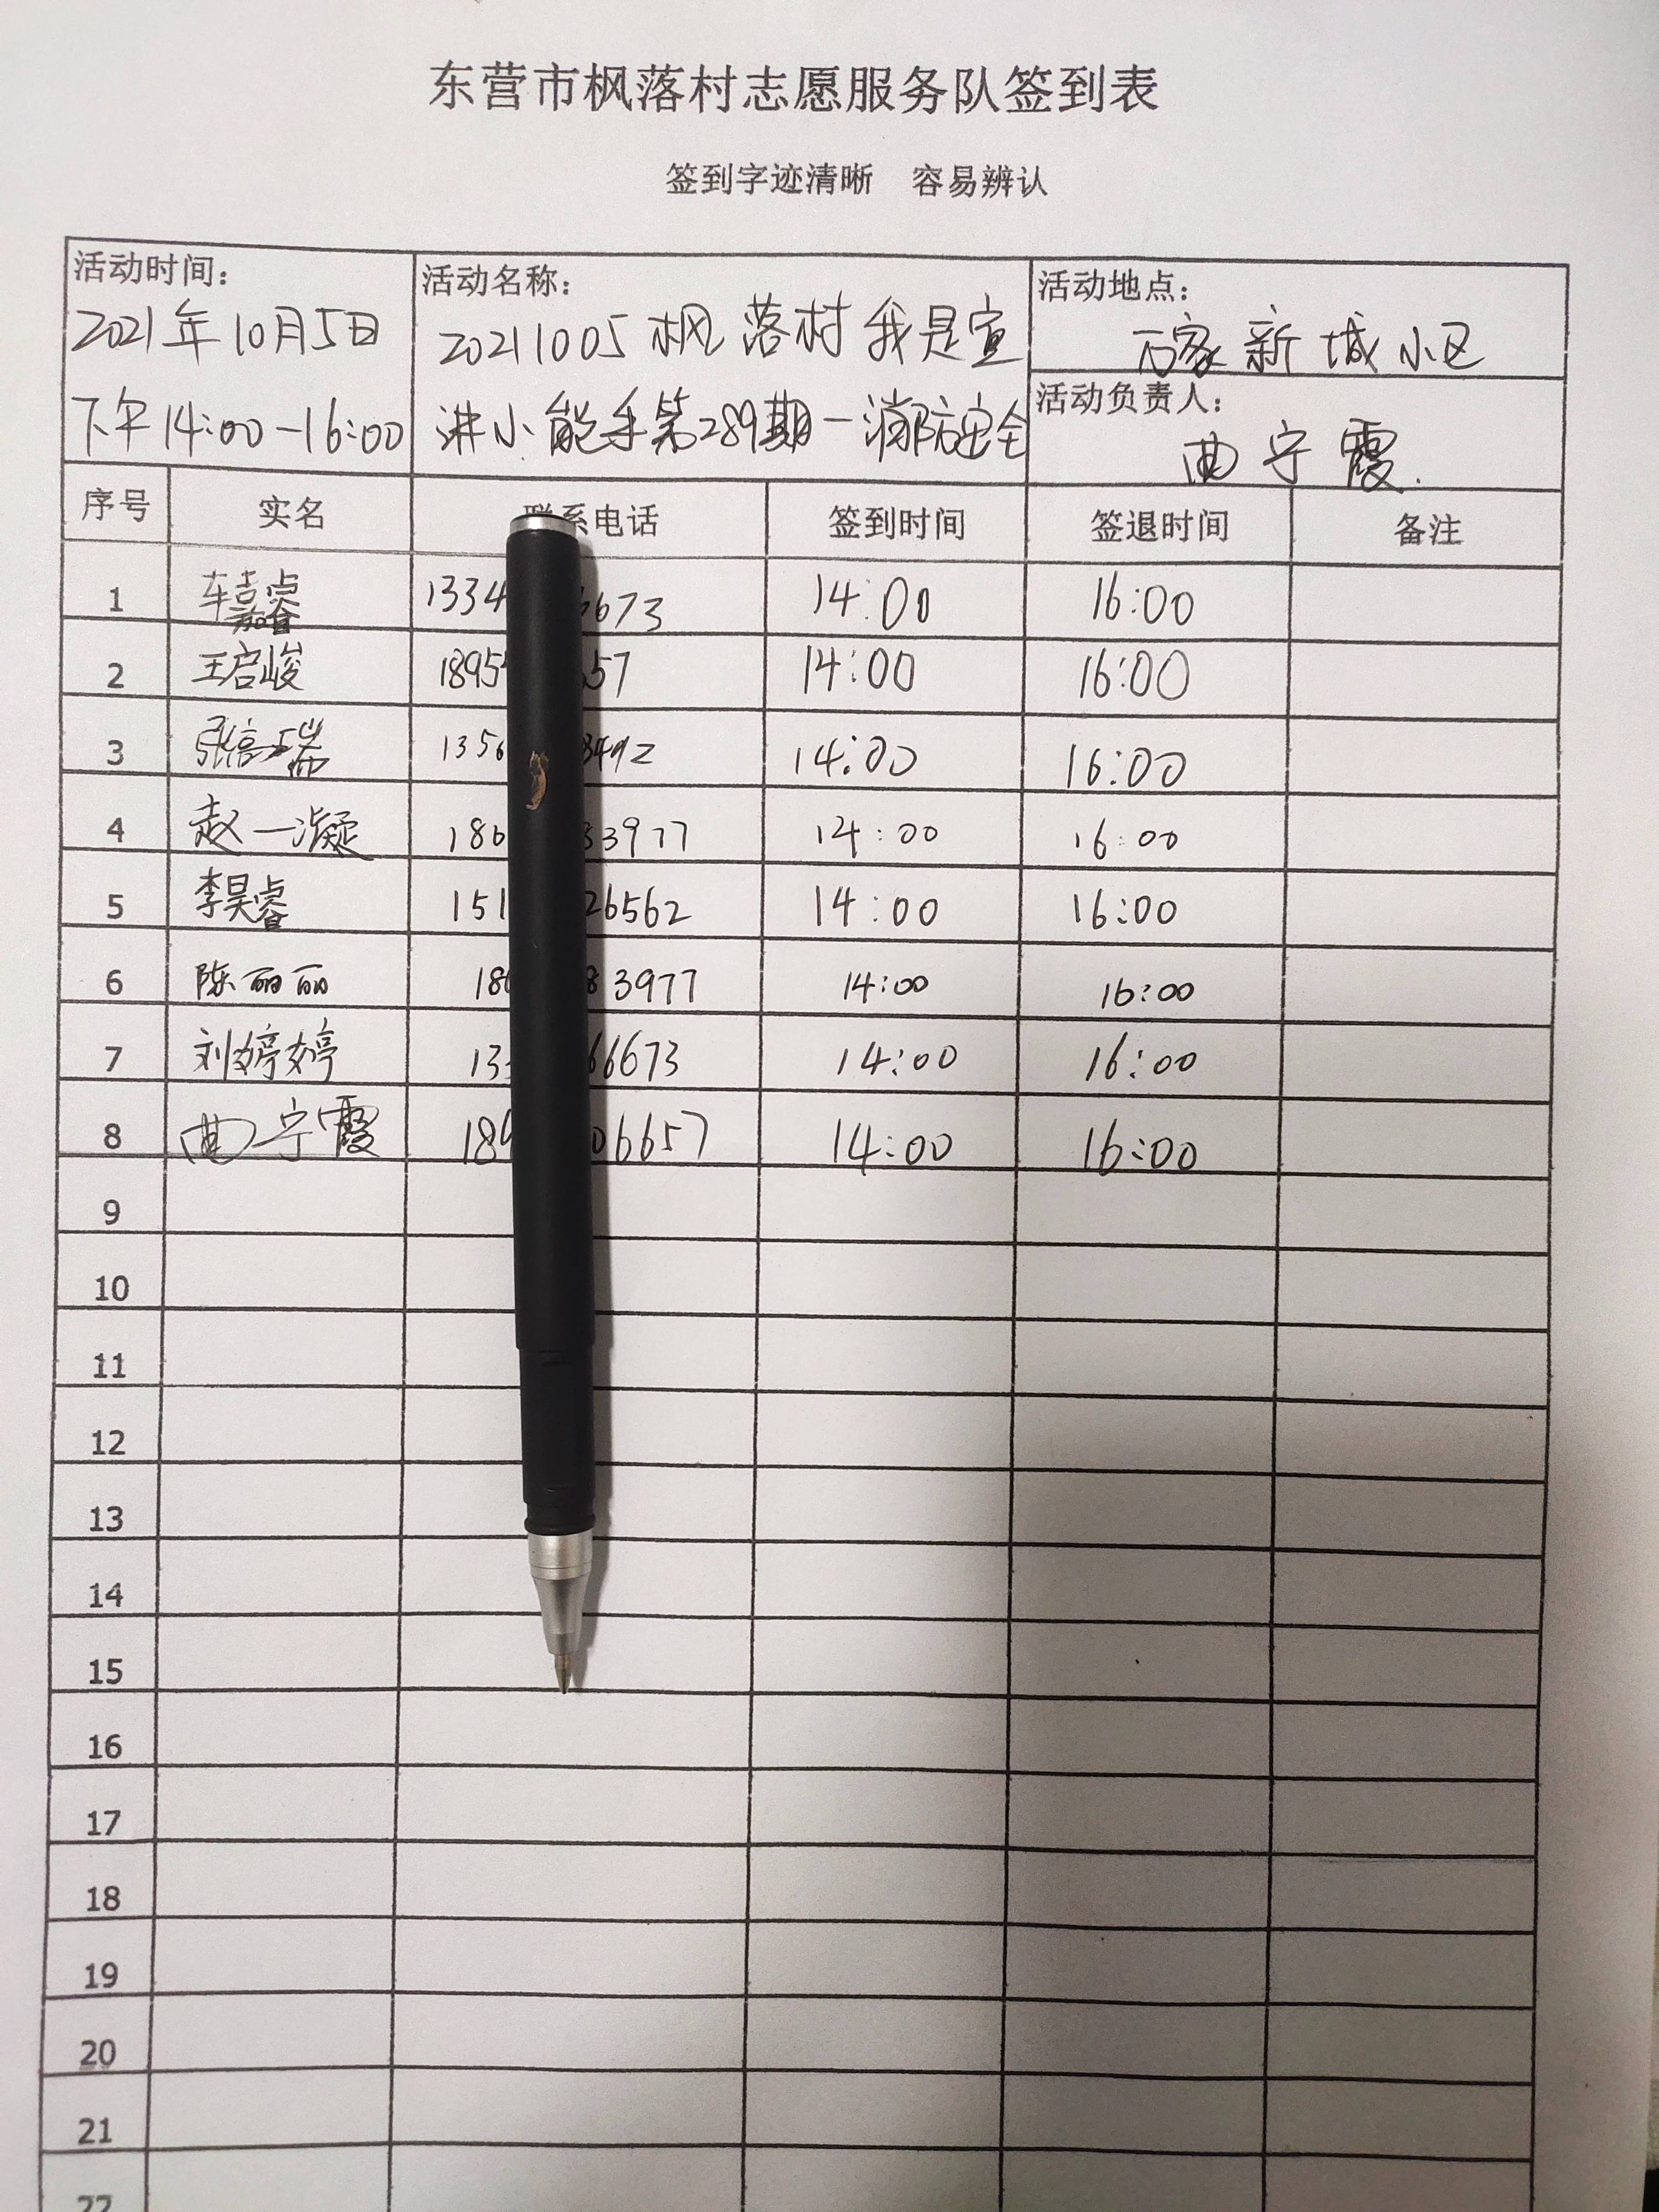 东营市枫落村志愿服务队签到表
签到字迹清晰 容易辨认
活动时间: 活动名称: 活动地点:
2021年10月5日 20211005枫落村我是宣 万家新城小区
下午14:00-16:00 讲小能手第289期-消防安全 活动负责人:
曲宁霞.
序号 实名 系电话 签到时间 签退时间 备注
1 车嘉睿 1334 6673 14:00 16:00
2 王启峻 1895 57 14:00 16:00
3 张高瑞 1356 3492 14:00 16:00
4 赵一凝 186 33977 14:00 16:00
5 李昊睿 151 26562 14:00 16:00
6 陈丽丽 18 83977 14:00 16:00
7 刘婷婷 13 66673 14:00 16:00
8 曲宁霞 189 06657 14:00 16:00
9
10
11
12
13
14
15
16
17
18
19
20
21
22